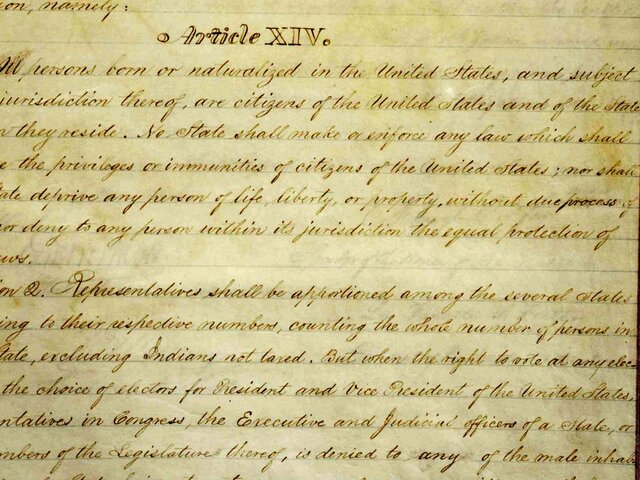 on, namely:
Article XIV.
All persons born or naturalized in the United States, and subject
jurisdiction thereof, are citizens of the United States and of the State
n they reside. No State shall make or enforce any law which shall
e the privileges or immunities of citizens of the United States; nor shall
tate deprive any person of life, liberty, or property, without due process of
nor deny to any person within its jurisdiction the equal protection of
aws.
on 2. Representatives shall be apportioned among the several States
ing to their respective numbers, counting the whole number of persons in
tate, excluding Indians not taxed. But when the right to vote at any elec-
the choice of electors for President and Vice President of the United States,
entatives in Congress, the Executive and Judicial officers of a State, or
mbers of the Legislature thereof, is denied to any of the male inhab-